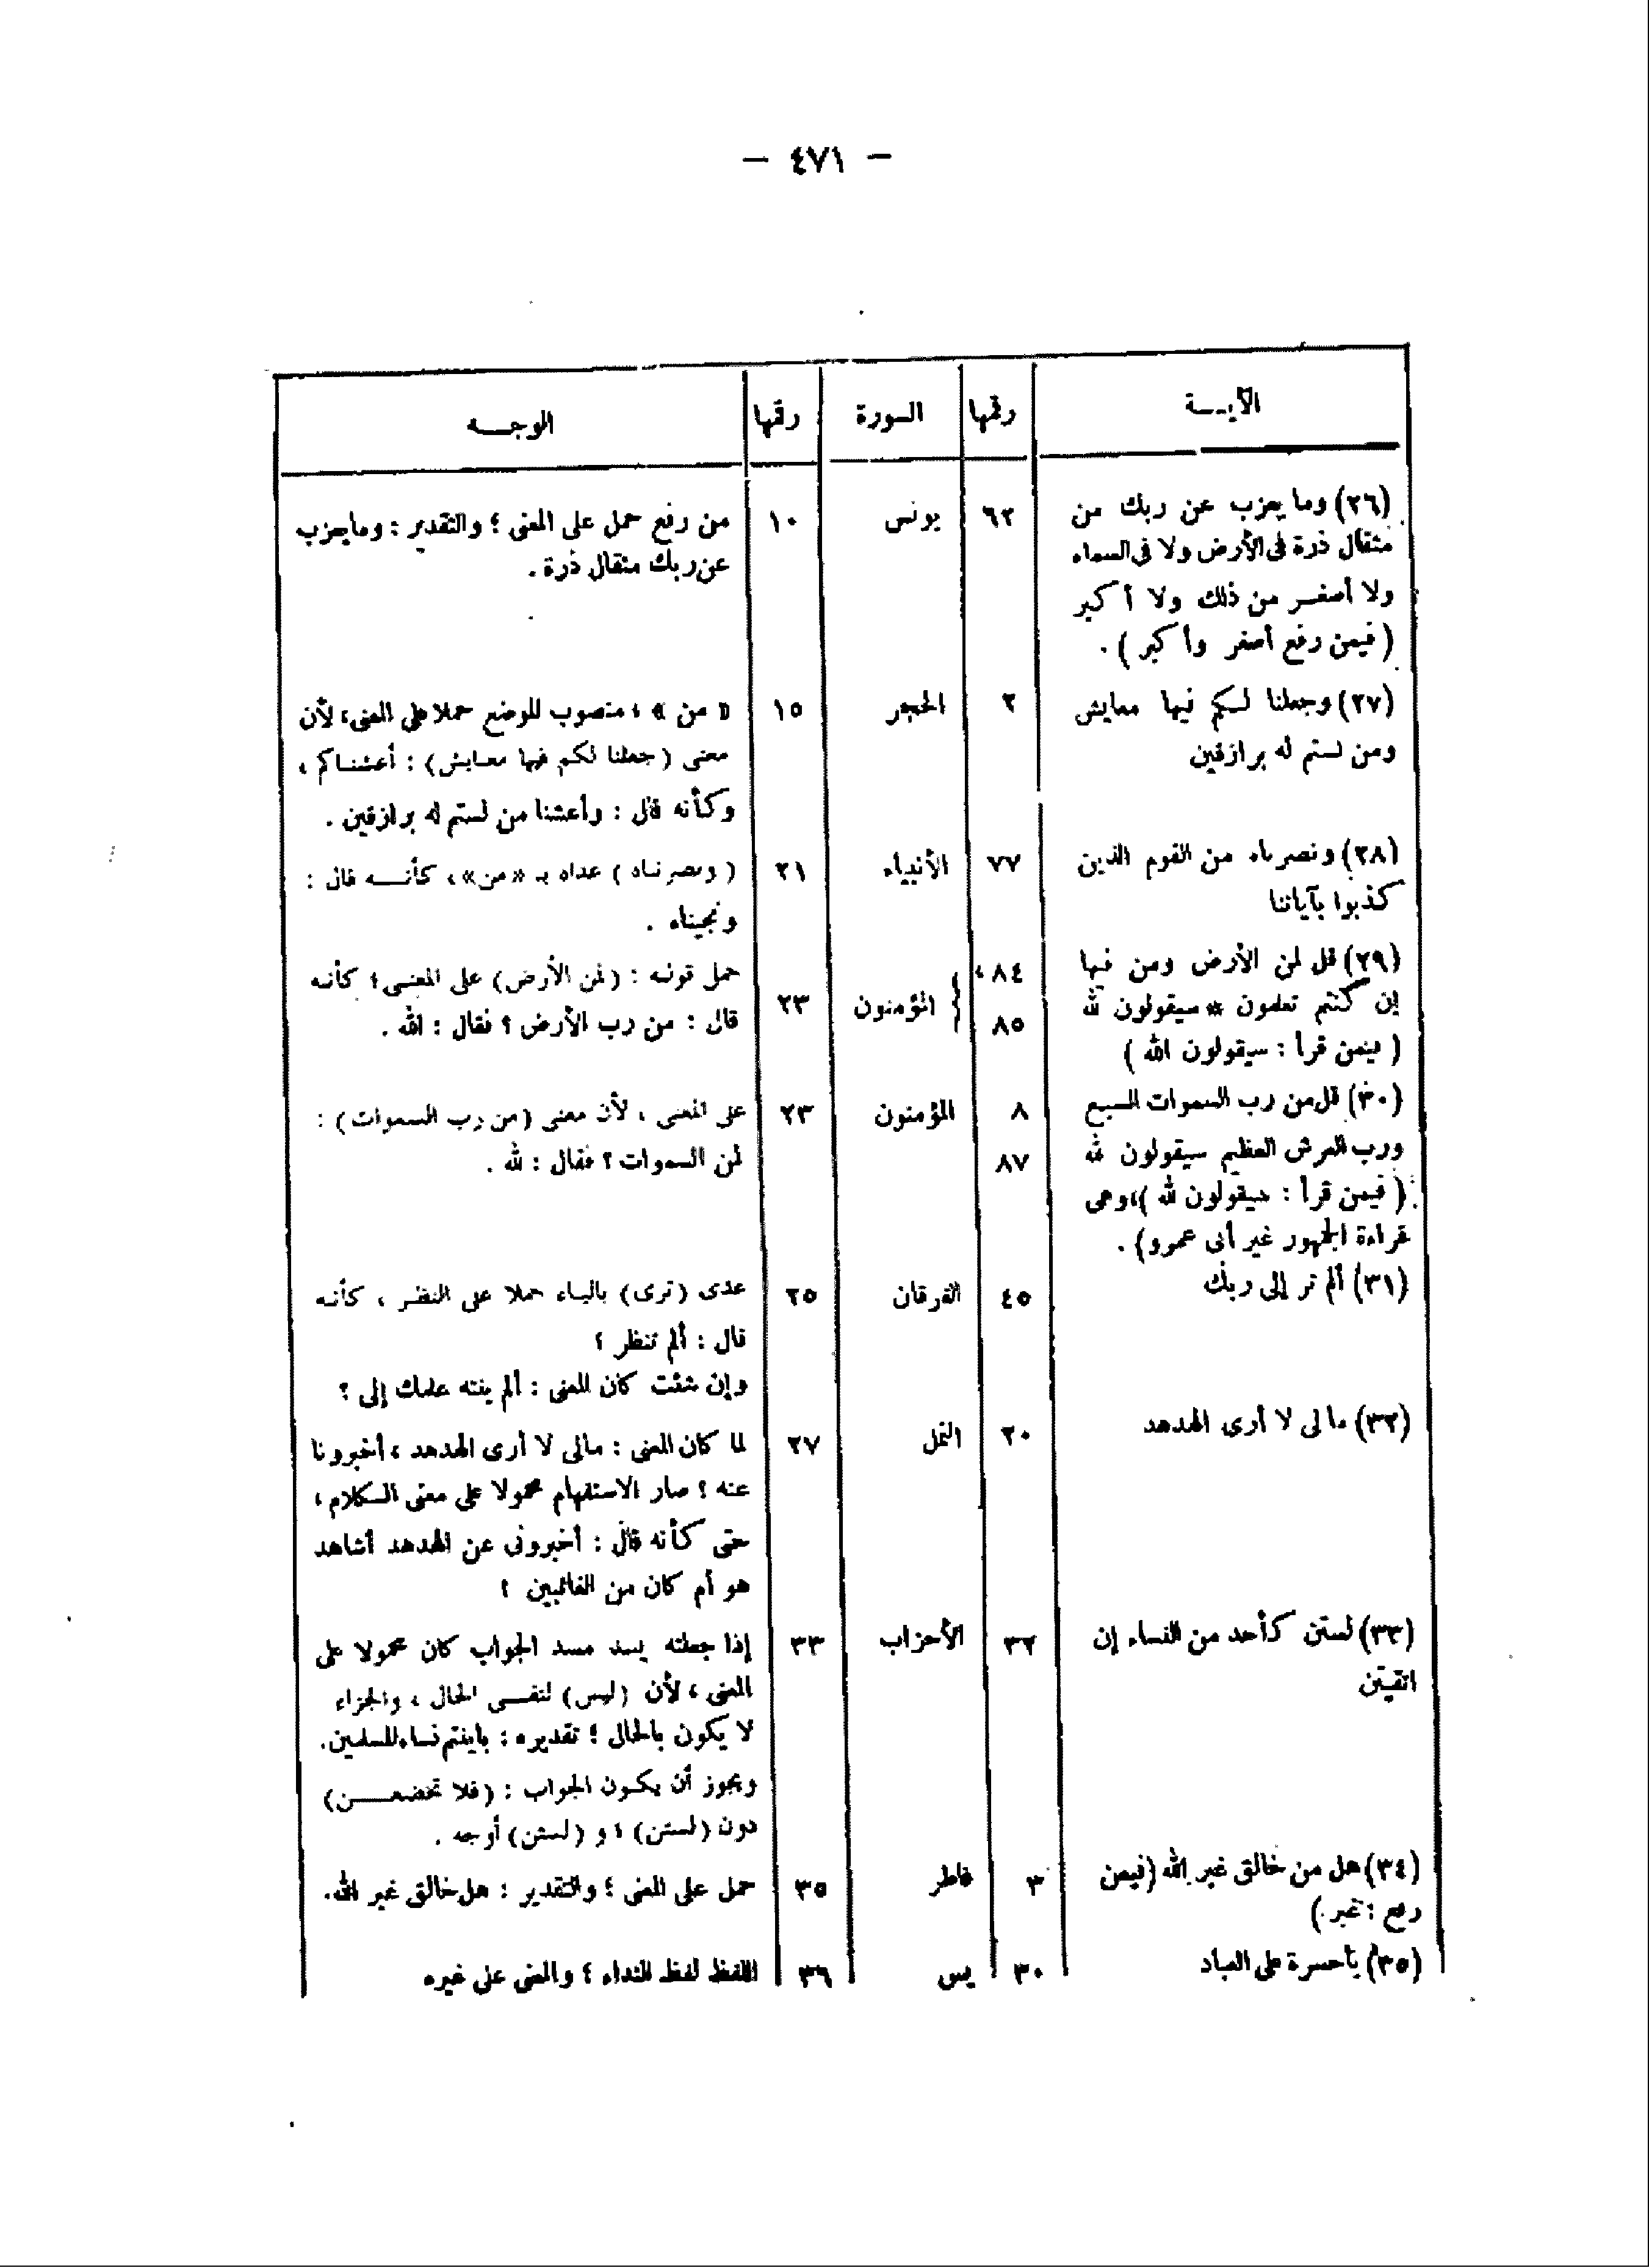 — ٤٧١ —
الآيــة رقمها السورة رقمها الوجــه
(٢٦) وما يعزب عن ربك من ٦٢ يونس ١٠ من رفع حمل على المعنى ؛ والتقدير : وما يعزب
مثقال ذرة فى الأرض ولا فى السماء عن ربك مثقال ذرة .
ولا أصغــر من ذلك ولا أكبر
( فيمن رفع أصغر وأكبر ) .
(٢٧) وجعلنا لكم فيها معايش ٢ الحجر ١٥ « من » ، منصوب الموضع حملا على المعنى، لأن
ومن لستم له برازقين معنى (جعلنا لكم فيها معايش) : أعشناكم ،
وكأنه قال : وأعشنا من لستم له برازقين .
(٢٨) ونصرناه من القوم الذين ٧٧ الأنبياء ٢١ ( ونصرناه ) عداه بـ «من» ، كأنــه قال :
كذبوا بآياتنا ونجيناه .
(٢٩) قل لمن الأرض ومن فيها ٨٤ ، المؤمنون ٢٣ حمل قوله : (لمن الأرض) على المعنى ؛ كأنه
إن كنتم تعلمون * سيقولون لله ٨٥ قال : من رب الأرض ؟ فقال : الله .
( فيمن قرأ : سيقولون الله )
(٣٠) قل من رب السموات السبع ٨ المؤمنون ٢٣ على المعنى ، لأن معنى (من رب السموات) :
ورب العرش العظيم سيقولون لله ٨٧ لمن السموات ؟ فقال : لله .
( فيمن قرأ : سيقولون لله )، وهى
قراءة الجمهور غير أبى عمرو) .
(٣١) ألم تر إلى ربك ٤٥ الفرقان ٢٥ عدى (ترى) بالياء حملا على النظر ، كأنه
قال : ألم تنظر ؟
وإن شئت كان المعنى : ألم ينته علمك إلى ؟
(٣٢) مالى لا أرى الهدهد ٢٠ النمل ٢٧ لما كان المعنى : مالى لا أرى الهدهد ، أخبرونا
عنه ؟ صار الاستفهام محمولا على معنى الكلام ،
حتى كأنه قال : أخبرونى عن الهدهد أشاهد
هو أم كان من الغائبين ؟
(٣٣) لستن كأحد من النساء إن ٣٢ الأحزاب ٣٣ إذا جعلته يسد مسد الجواب كان محمولا على
اتقيتن المعنى ، لأن (ليس) لنفــى الحال ، والجزاء
لا يكون بالحال ؛ تقديره : باينتم نساء المسلمين.
ويجوز أن يكون الجواب : (فلا تخضعــن)
دون (لستن) ؛ و (لستن) أوجه .
(٣٤) هل من خالق غير الله (فيمن ٣ فاطر ٣٥ حمل على المعنى ؛ والتقدير : هل خالق غير الله.
رفع : غير.)
(٣٥) ياحسرة على العباد ٣٠ يس ٣٦ اللفظ لفظ النداء ؛ والمعنى على غيره